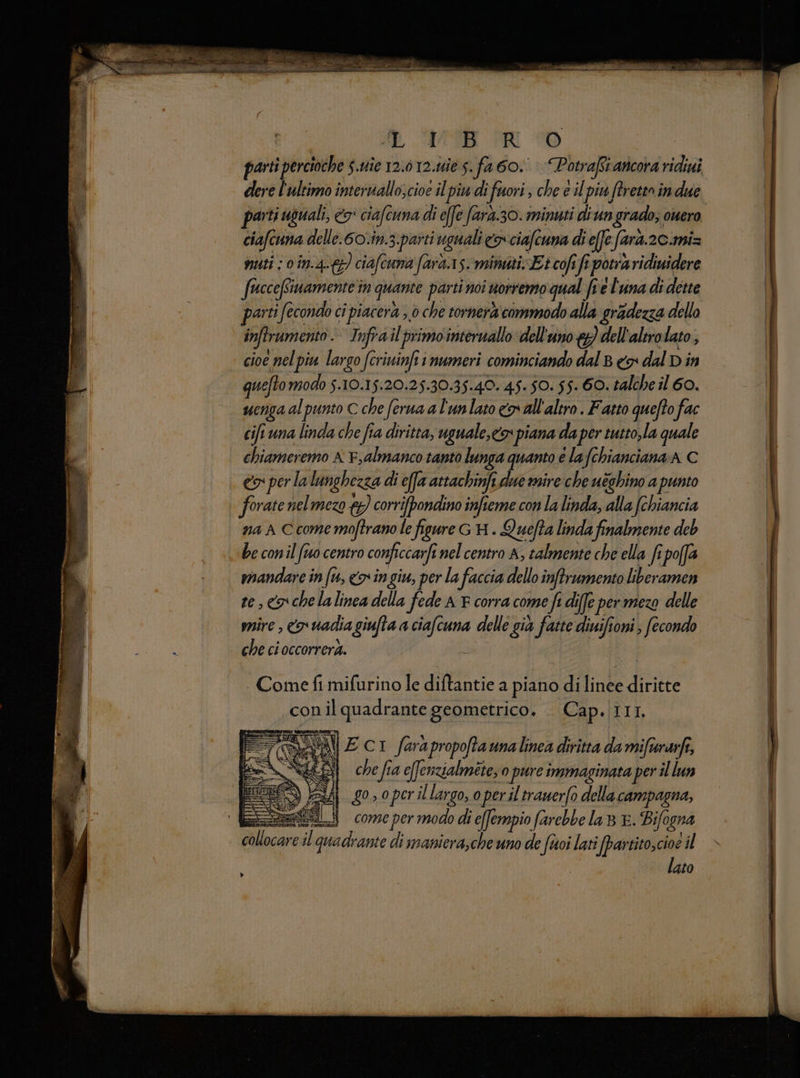 L I B R O
parti percioche 5.uie 12.ò 12.uie 5. fa 60. Potraßi ancora ridiui
dere l'ultimo interuallo,cioè il piu di fuori, che è il piu ſtretto in due
parti uguali, & ciaſcuna di eſſe ſarà.30. minuti di un grado, ouero
ciaſcuna delle.60.in.3.parti uguali & ciaſcuna di eſſe ſarà.20.mi=
nuti : o in.4.& ciaſcuna ſarà.15. minuti. Et coſi ſi potrà ridiuidere
ſucceßiuamente in quante parti noi uorremo qual ſi è l'una di dette
parti ſecondo ci piacerà, o che tornerà commodo alla grãdezza dello
inſtrumento. Infra il primo interuallo dell'uno & dell'altro lato,
cioè nel piu largo ſcriuinſi i numeri cominciando dal B & dal D in
queſto modo 5.10.15.20.25.30.35.40. 45. 50. 55. 60. talche il 60.
uenga al punto C che ſerua a l'un lato & all'altro. Fatto queſto fac
ciſi una linda che ſia diritta, uguale,& piana da per tutto,la quale
chiameremo A F,almanco tanto lunga quanto è la ſchianciana A C
& per la lunghezza di eſſa attachinſi due mire che uẽghino a punto
forate nel mezo & corriſpondino inſieme con la linda, alla ſchiancia
na A C come moſtrano le figure G H. Queſta linda finalmente deb
be con il ſuo centro conficcarſi nel centro A, talmente che ella ſi poſſa
mandare in ſu, & in giu, per la faccia dello inſtrumento liberamen
te, & che la linea della fede A F corra come ſi diſſe per mezo delle
mire, & uadia giuſta a ciaſcuna delle già fatte diuiſioni, ſecondo
che ci occorrerà.
Come ſi miſurino le diſtantie a piano di linee diritte
con il quadrante geometrico. Cap. III.
ECI ſarà propoſta una linea diritta da miſurarſi,
che ſia eſſenzialmẽte, o pure immaginata per il lun
go, o per il largo, o per il trauerſo della campagna,
come per modo di eſſempio ſarebbe la B E. Biſogna
collocare il quadrante di maniera,che uno de ſuoi lati ſpartito,cioè il
lato